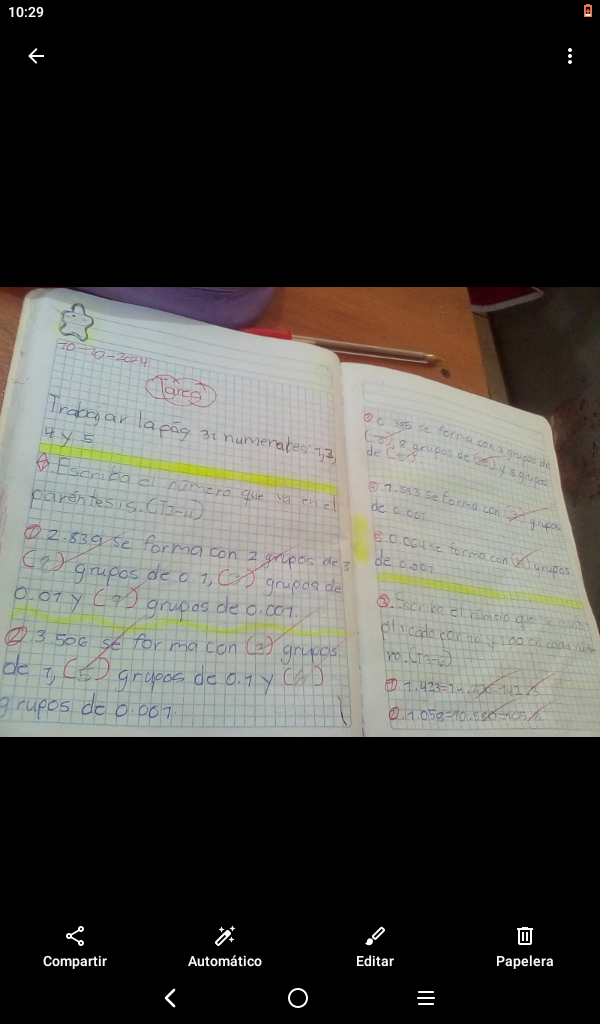 10:29
10-10-2024
Tarea
Trabajar la pág 31 numerales 1,3,
4 y 5
Escriba el número que va en el
paréntesis. (T3-4)
① 2.839 se forma con 2 grupos de
(8) grupos de 0.1, (3) grupos de
0.01 y (9) grupos de 0.001.
② 3.506 se forma con (3) grupos
de 1, (5) grupos de 0.1 y (6)
grupos de 0.001.
0.385 se forma con 3 grupos de
8 grupos de y 5 grupos
de
se forma con grupos
de 0.001
5. 0.064 se forma con grupos
de 0.001
Escriba el número que se
plicado por 10 y 100 en cada núme
ro.
① 1.423=14.23
② 1.058=10.580
Compartir
Automático
Editar
Papelera